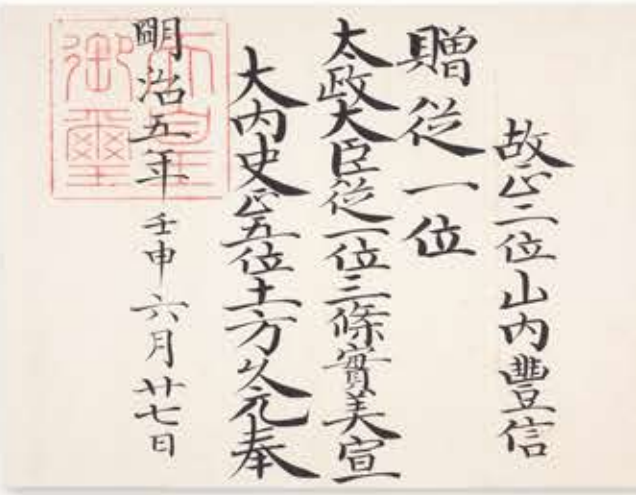 故正二位山内豐信
贈從一位
太政大臣從一位三條實美宣
大内史正五位土方久元奉
明治五年壬申六月廿七日
天皇御璽